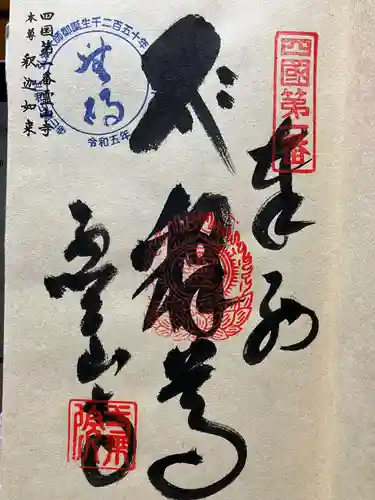 四國第一番
奉納
釋尊
霊山寺
師御誕生千二百五十年
令和五年
四国第一番霊山寺
本尊 釈迦如来
一乘院